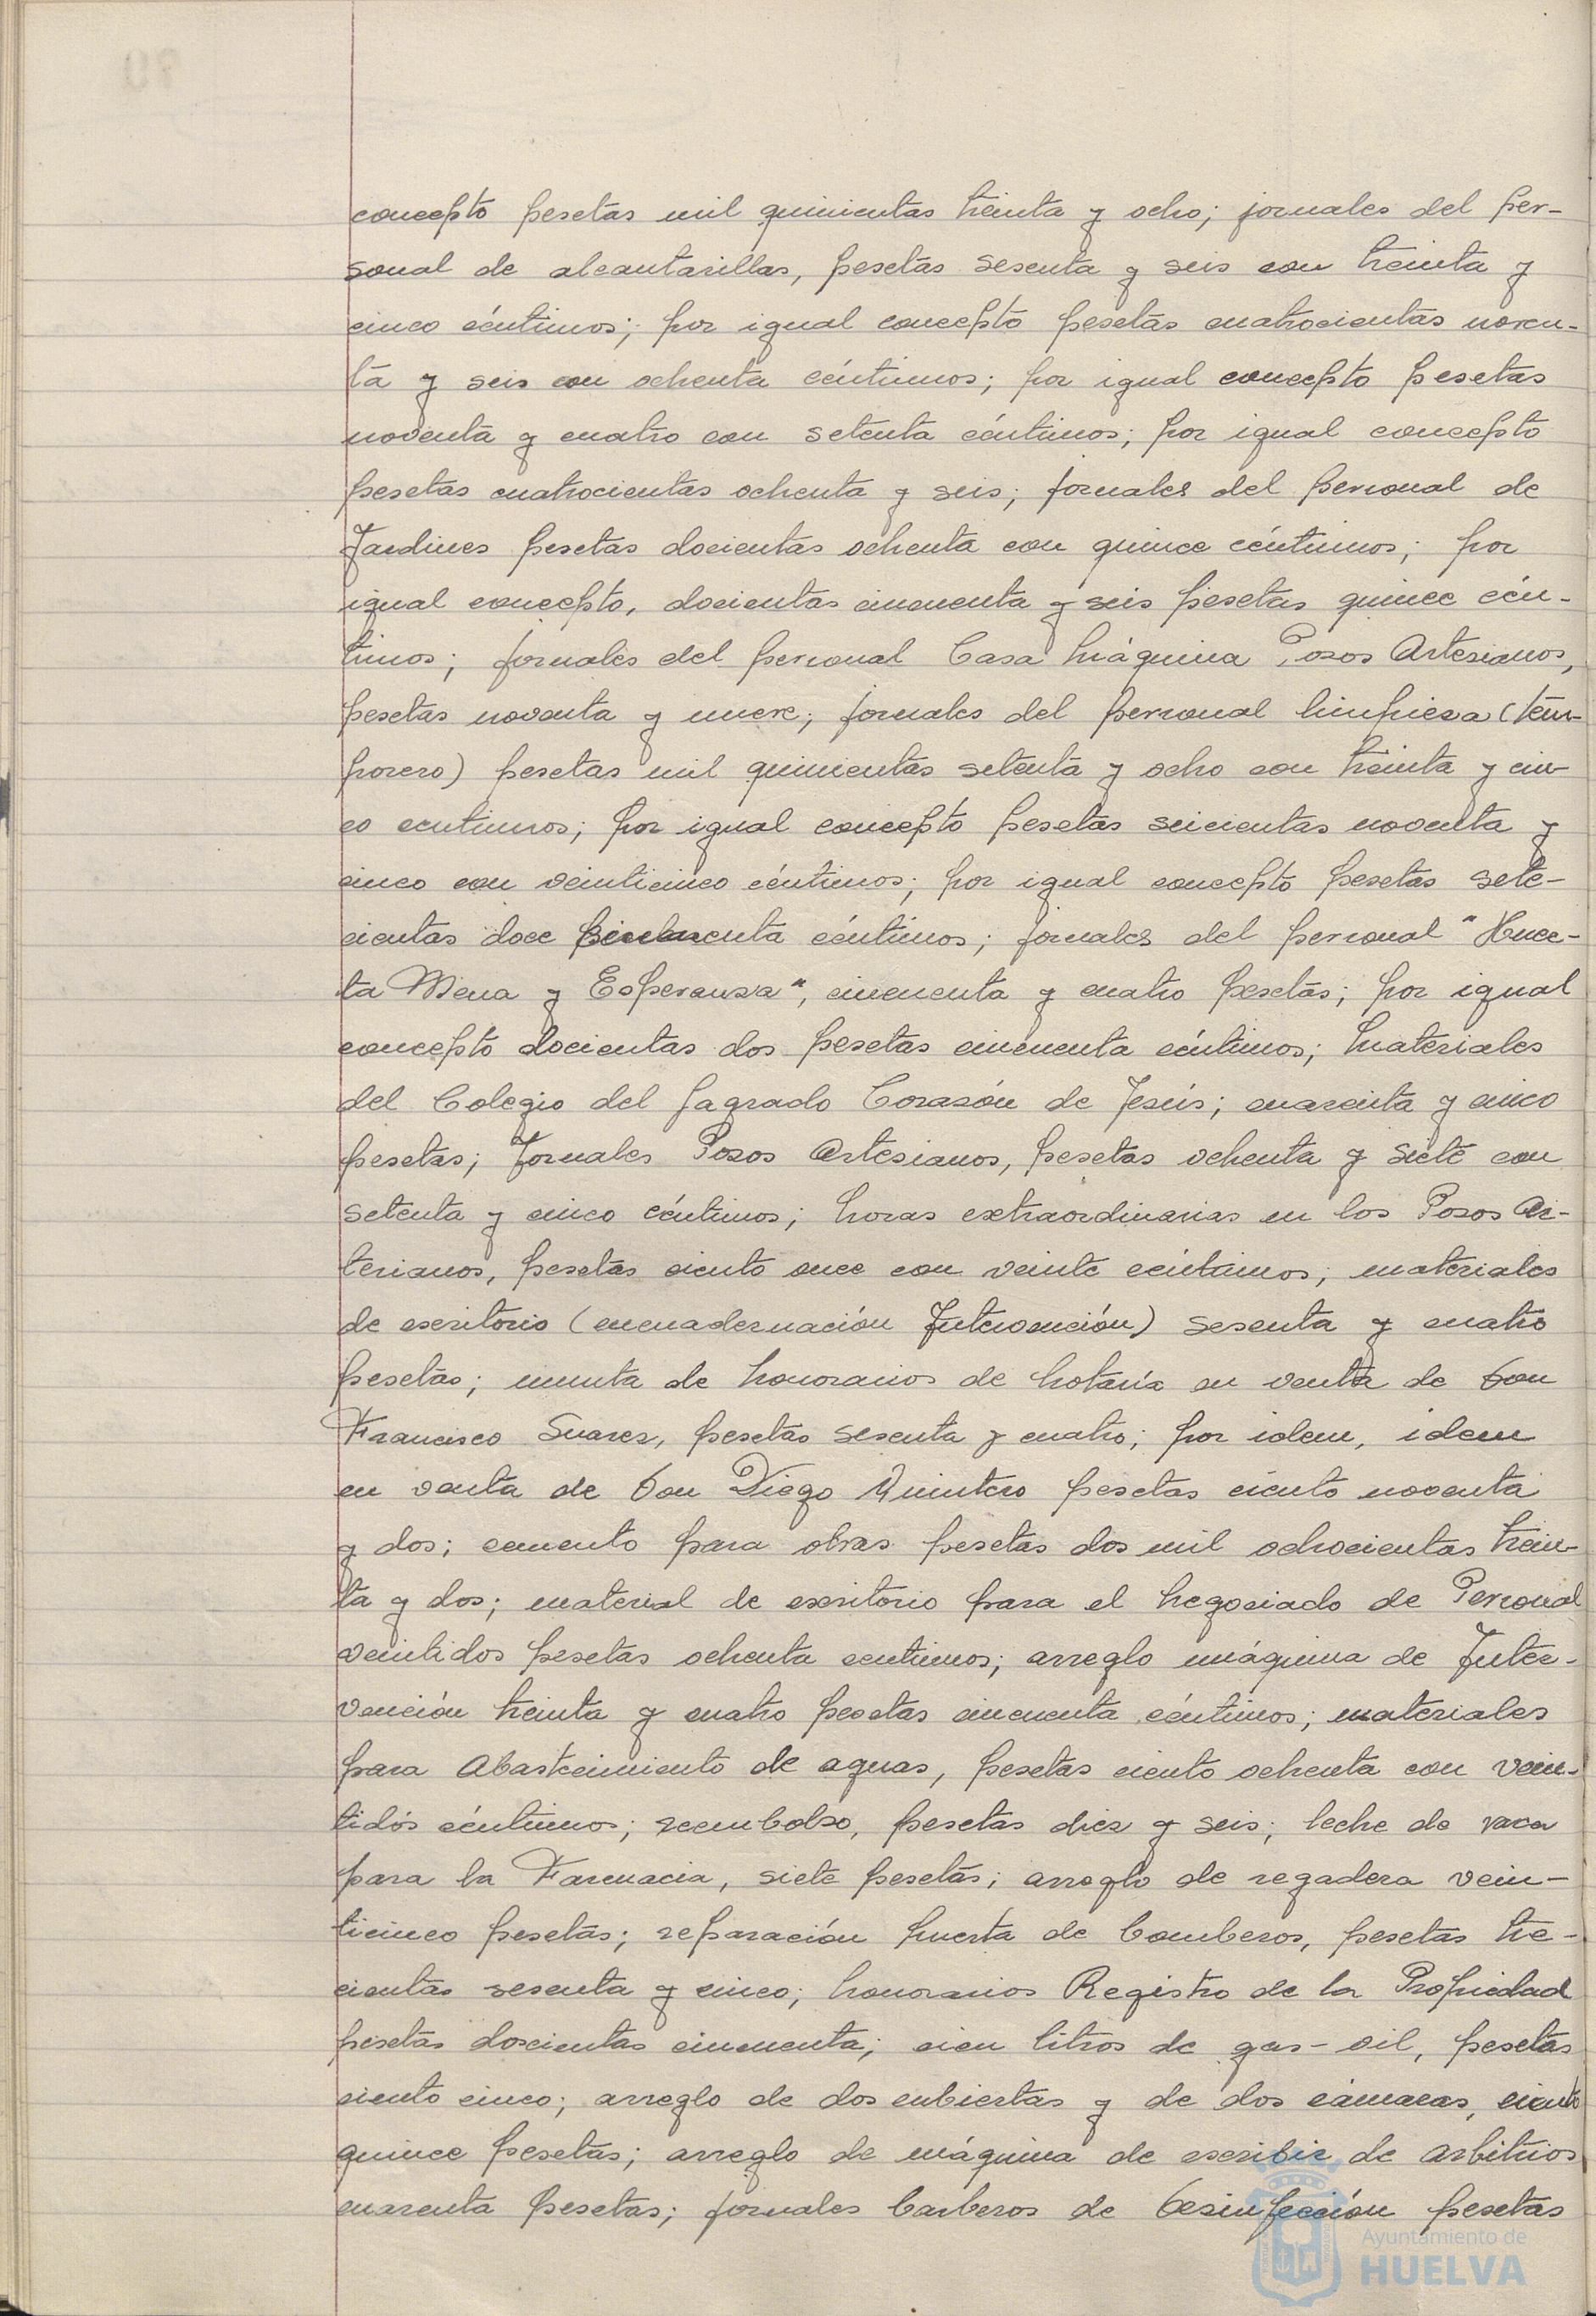 concepto pesetas mil quinientas treinta y ocho; jornales del per-
sonal de alcantarillas, pesetas sesenta y seis con treinta y
cinco céntimos; por igual concepto pesetas cuatrocientas noven-
ta y seis con ochenta céntimos; por igual concepto pesetas
noventa y cuatro con setenta céntimos; por igual concepto
pesetas cuatrocientas ochenta y seis; jornales del personal de
Jardines pesetas docientas ochenta con quince céntimos; por
igual concepto, docientas cincuenta y seis pesetas quince cén-
timos; jornales del personal Casa Máquina Pozos Artesianos,
pesetas noventa y nueve; jornales del personal limpieza (tem-
porero) pesetas mil quinientas setenta y ocho con treinta y cin-
co centimos; por igual concepto pesetas seicientas noventa y
cinco con veinticinco céntimos; por igual concepto pesetas sete-
cientas doce céntimos; jornales del personal "Huer-
ta Mena y Esperanza", cincuenta y cuatro pesetas; por igual
concepto docientas dos pesetas cincuenta céntimos; Materiales
del Colegio del Sagrado Corazón de Jesús; cuarenta y cinco
pesetas; Jornales Pozos Artesianos, pesetas ochenta y siete con
setenta y cinco céntimos; horas extraordinarias en los Pozos Ar-
tesianos, pesetas ciento once con veinte céntimos; materiales
de escritorio (encuadernación Intervención) sesenta y cuatro
pesetas; minuta de honorarios de Notaría en venta de Don
Francisco Suarez, pesetas sesenta y cuatro; por idem, idem
en venta de Don Diego Quintero pesetas ciento noventa
y dos; cemento para obras pesetas dos mil ochocientas trein-
ta y dos; material de escritorio para el Negociado de Personal
veintidos pesetas ochenta centimos; arreglo máquina de Inter-
vención treinta y cuatro pesetas cincuenta céntimos; materiales
para Abastecimiento de aguas, pesetas ciento ochenta con vein-
tidós céntimos; reembolso, pesetas diez y seis; leche de vaca
para la Farmacia, siete pesetas; arreglo de regadera vein-
ticinco pesetas; reparación puerta de bomberos, pesetas tre-
cientas sesenta y cinco; honorarios Registro de la Propiedad
pesetas doscientas cincuenta; cien litros de gas-oil, pesetas
ciento cinco; arreglo de dos cubiertas y de dos cámaras, ciento
quince pesetas; arreglo de máquina de escribir de arbitrios
cuarenta pesetas; jornales barberos de Desinfección pesetas
Ayuntamiento de
HUELVA